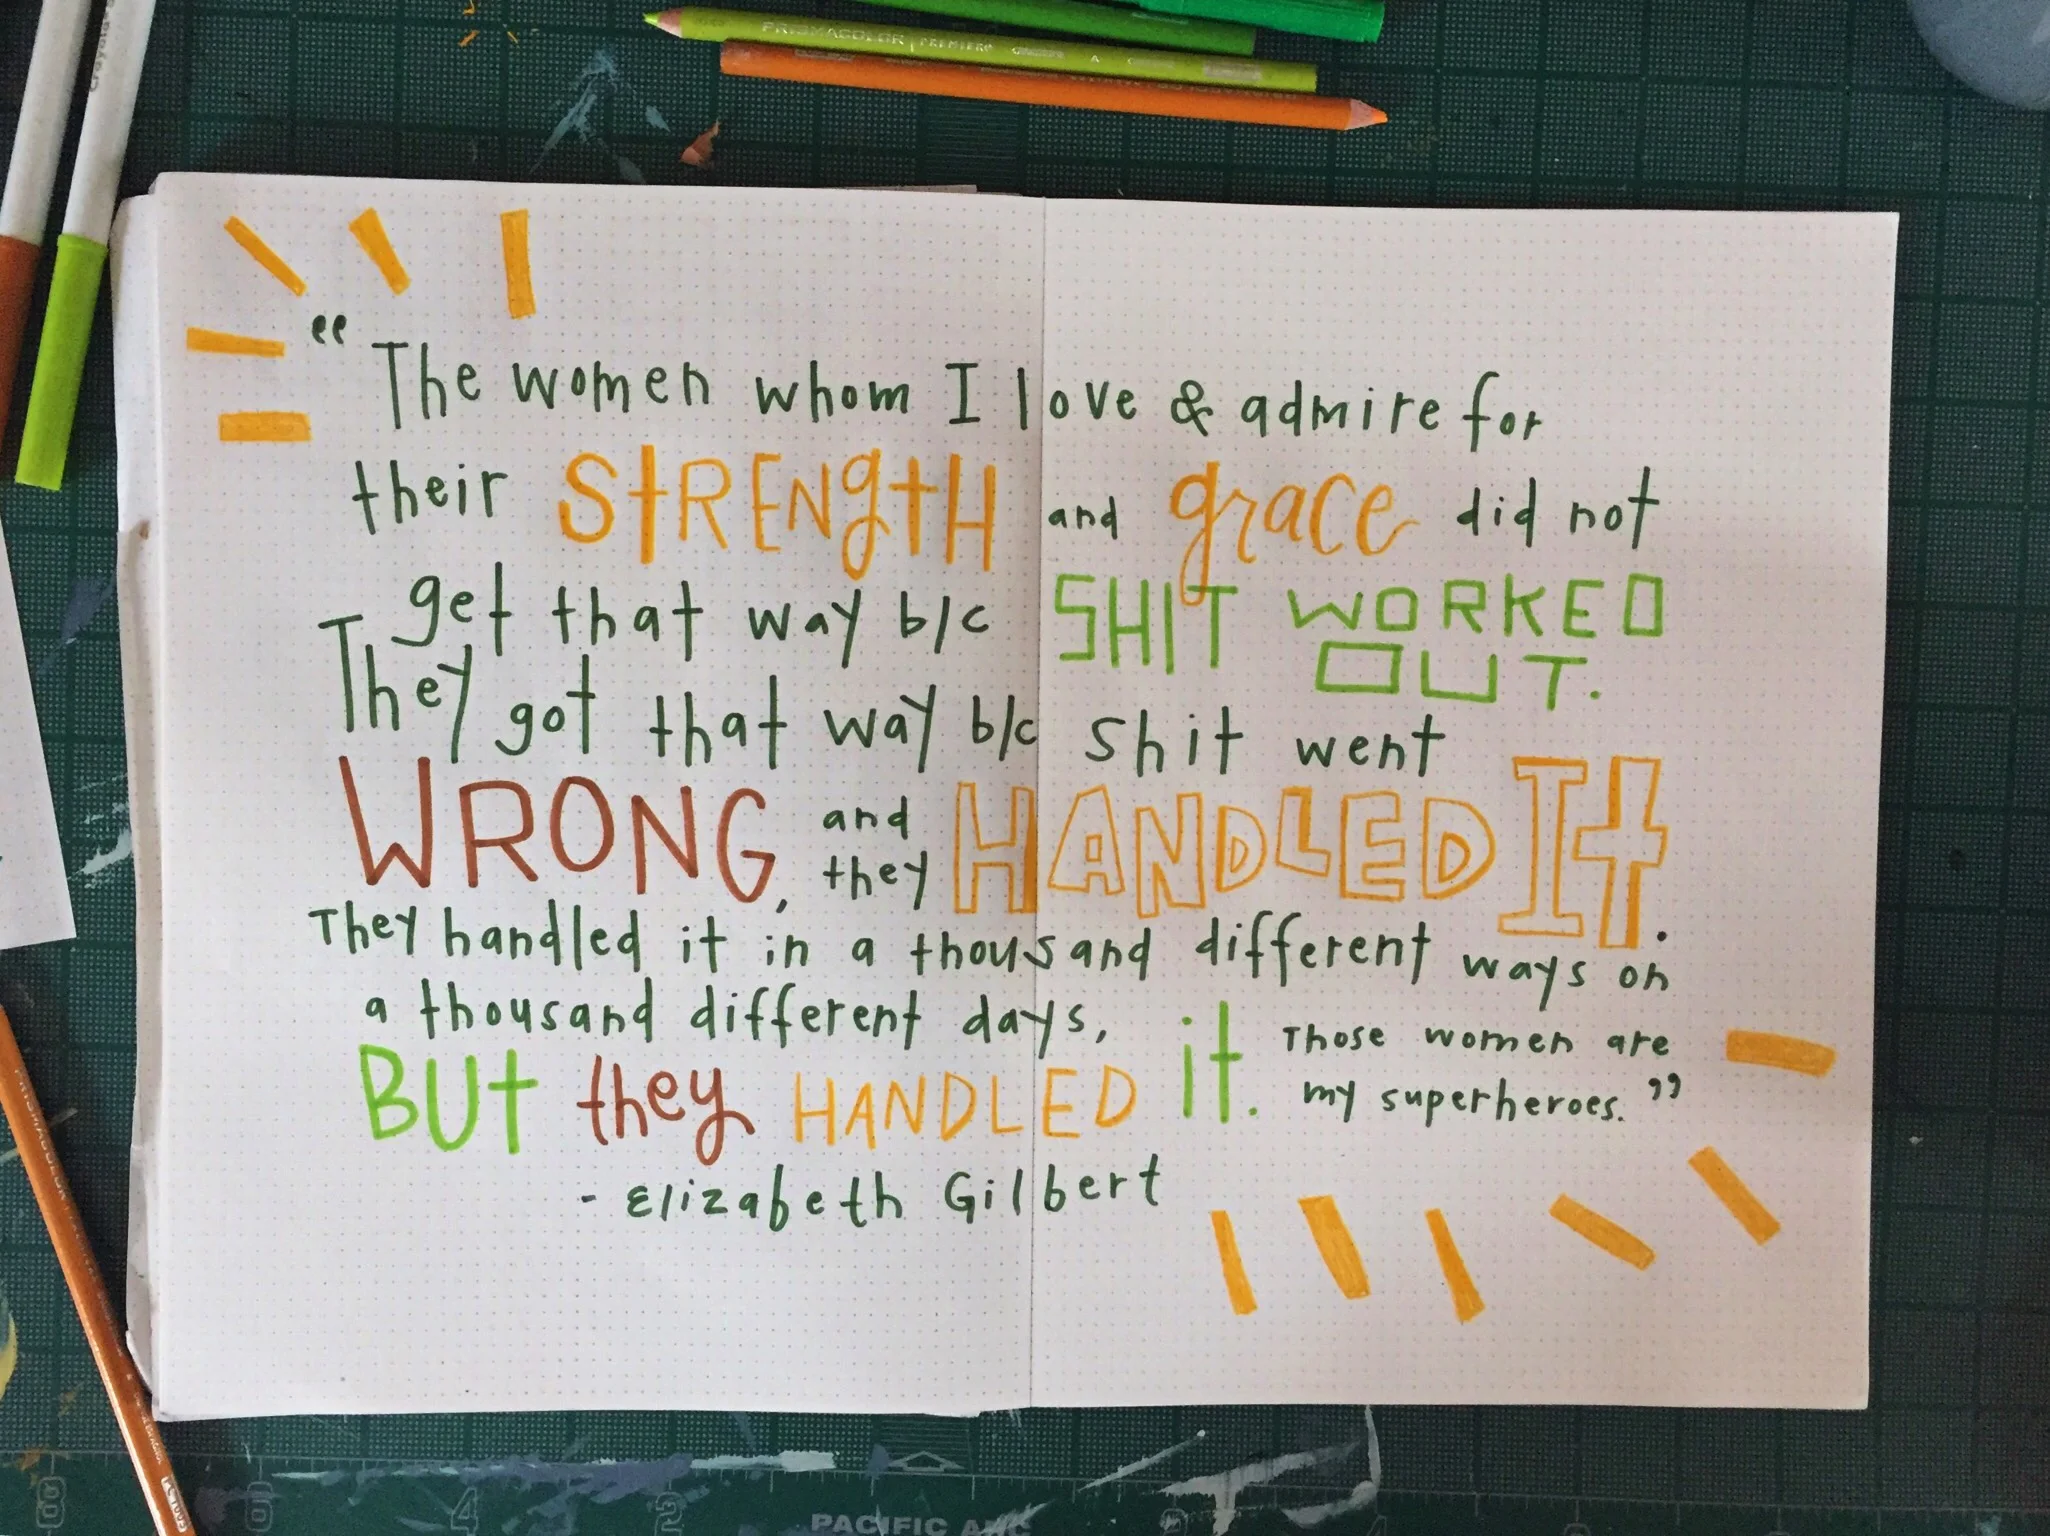 Crayola
PRISMACOLOR | PREMIER
“The women whom I love & admire for
their StRENgtH and grace did not
get that way b/c SHIT WORKED
OUT.
They got that way b/c shit went
WRONG, and they HANDLED It.
They handled it in a thousand different ways on
a thousand different days,
BUt they HANDLED it. Those women are
my superheroes.”
- Elizabeth Gilbert
8 6 4 2
PACIFIC ARC